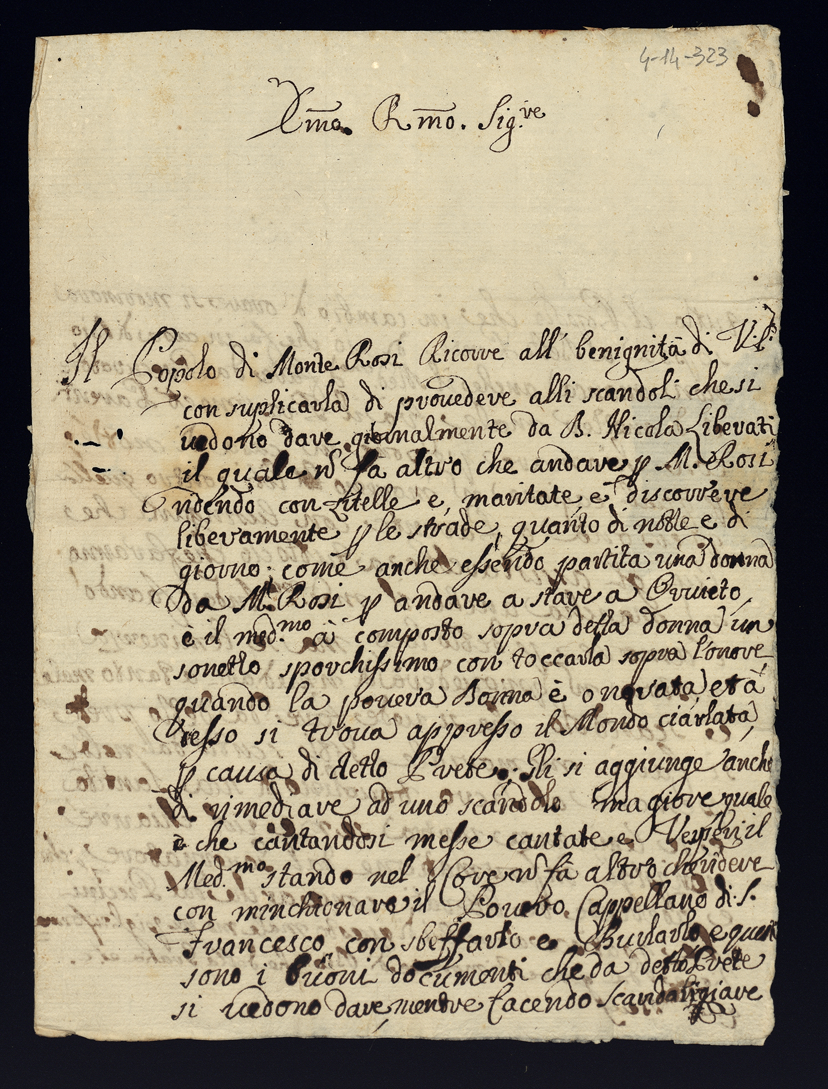 4-14-323
Illmo. Rmo. Sig.re
Il Popolo di Monte Rosi Ricorre all' benignità di V.S.
con suplicarla di provedere alli scandoli che si
vedono dare giornalmente da B. Nicola Liberati
il quale nõ fa altro che andare p M. Rosi
ridendo con zitelle é maritate, e discorrere
liberamente p le strade, quanto di notte e di
giorno; come anche essendo partita una donna
da M. Rosi p andare a stare a Orvieto,
è il med.mo à composto sopra detta donna un
sonetto sporchissimo con toccarla sopra l'onore
quando la povera Donna è onorata età
desso si trova appresso il Mondo ciarlata
p causa di detto Prete. Gli si aggiunge anche
di rimediare ad uno scandolo magiore quale
è che cantandosi messe cantate e Vesperi il
Med.mo stando nel Core nõ fa altro che ridere
con minchionare il Povero Cappellano di S.
Francesco con sbeffarlo e Burlarlo e questi
sono i buoni documenti che da detto Prete
si vedono dare, mentre facendo scandaligiare